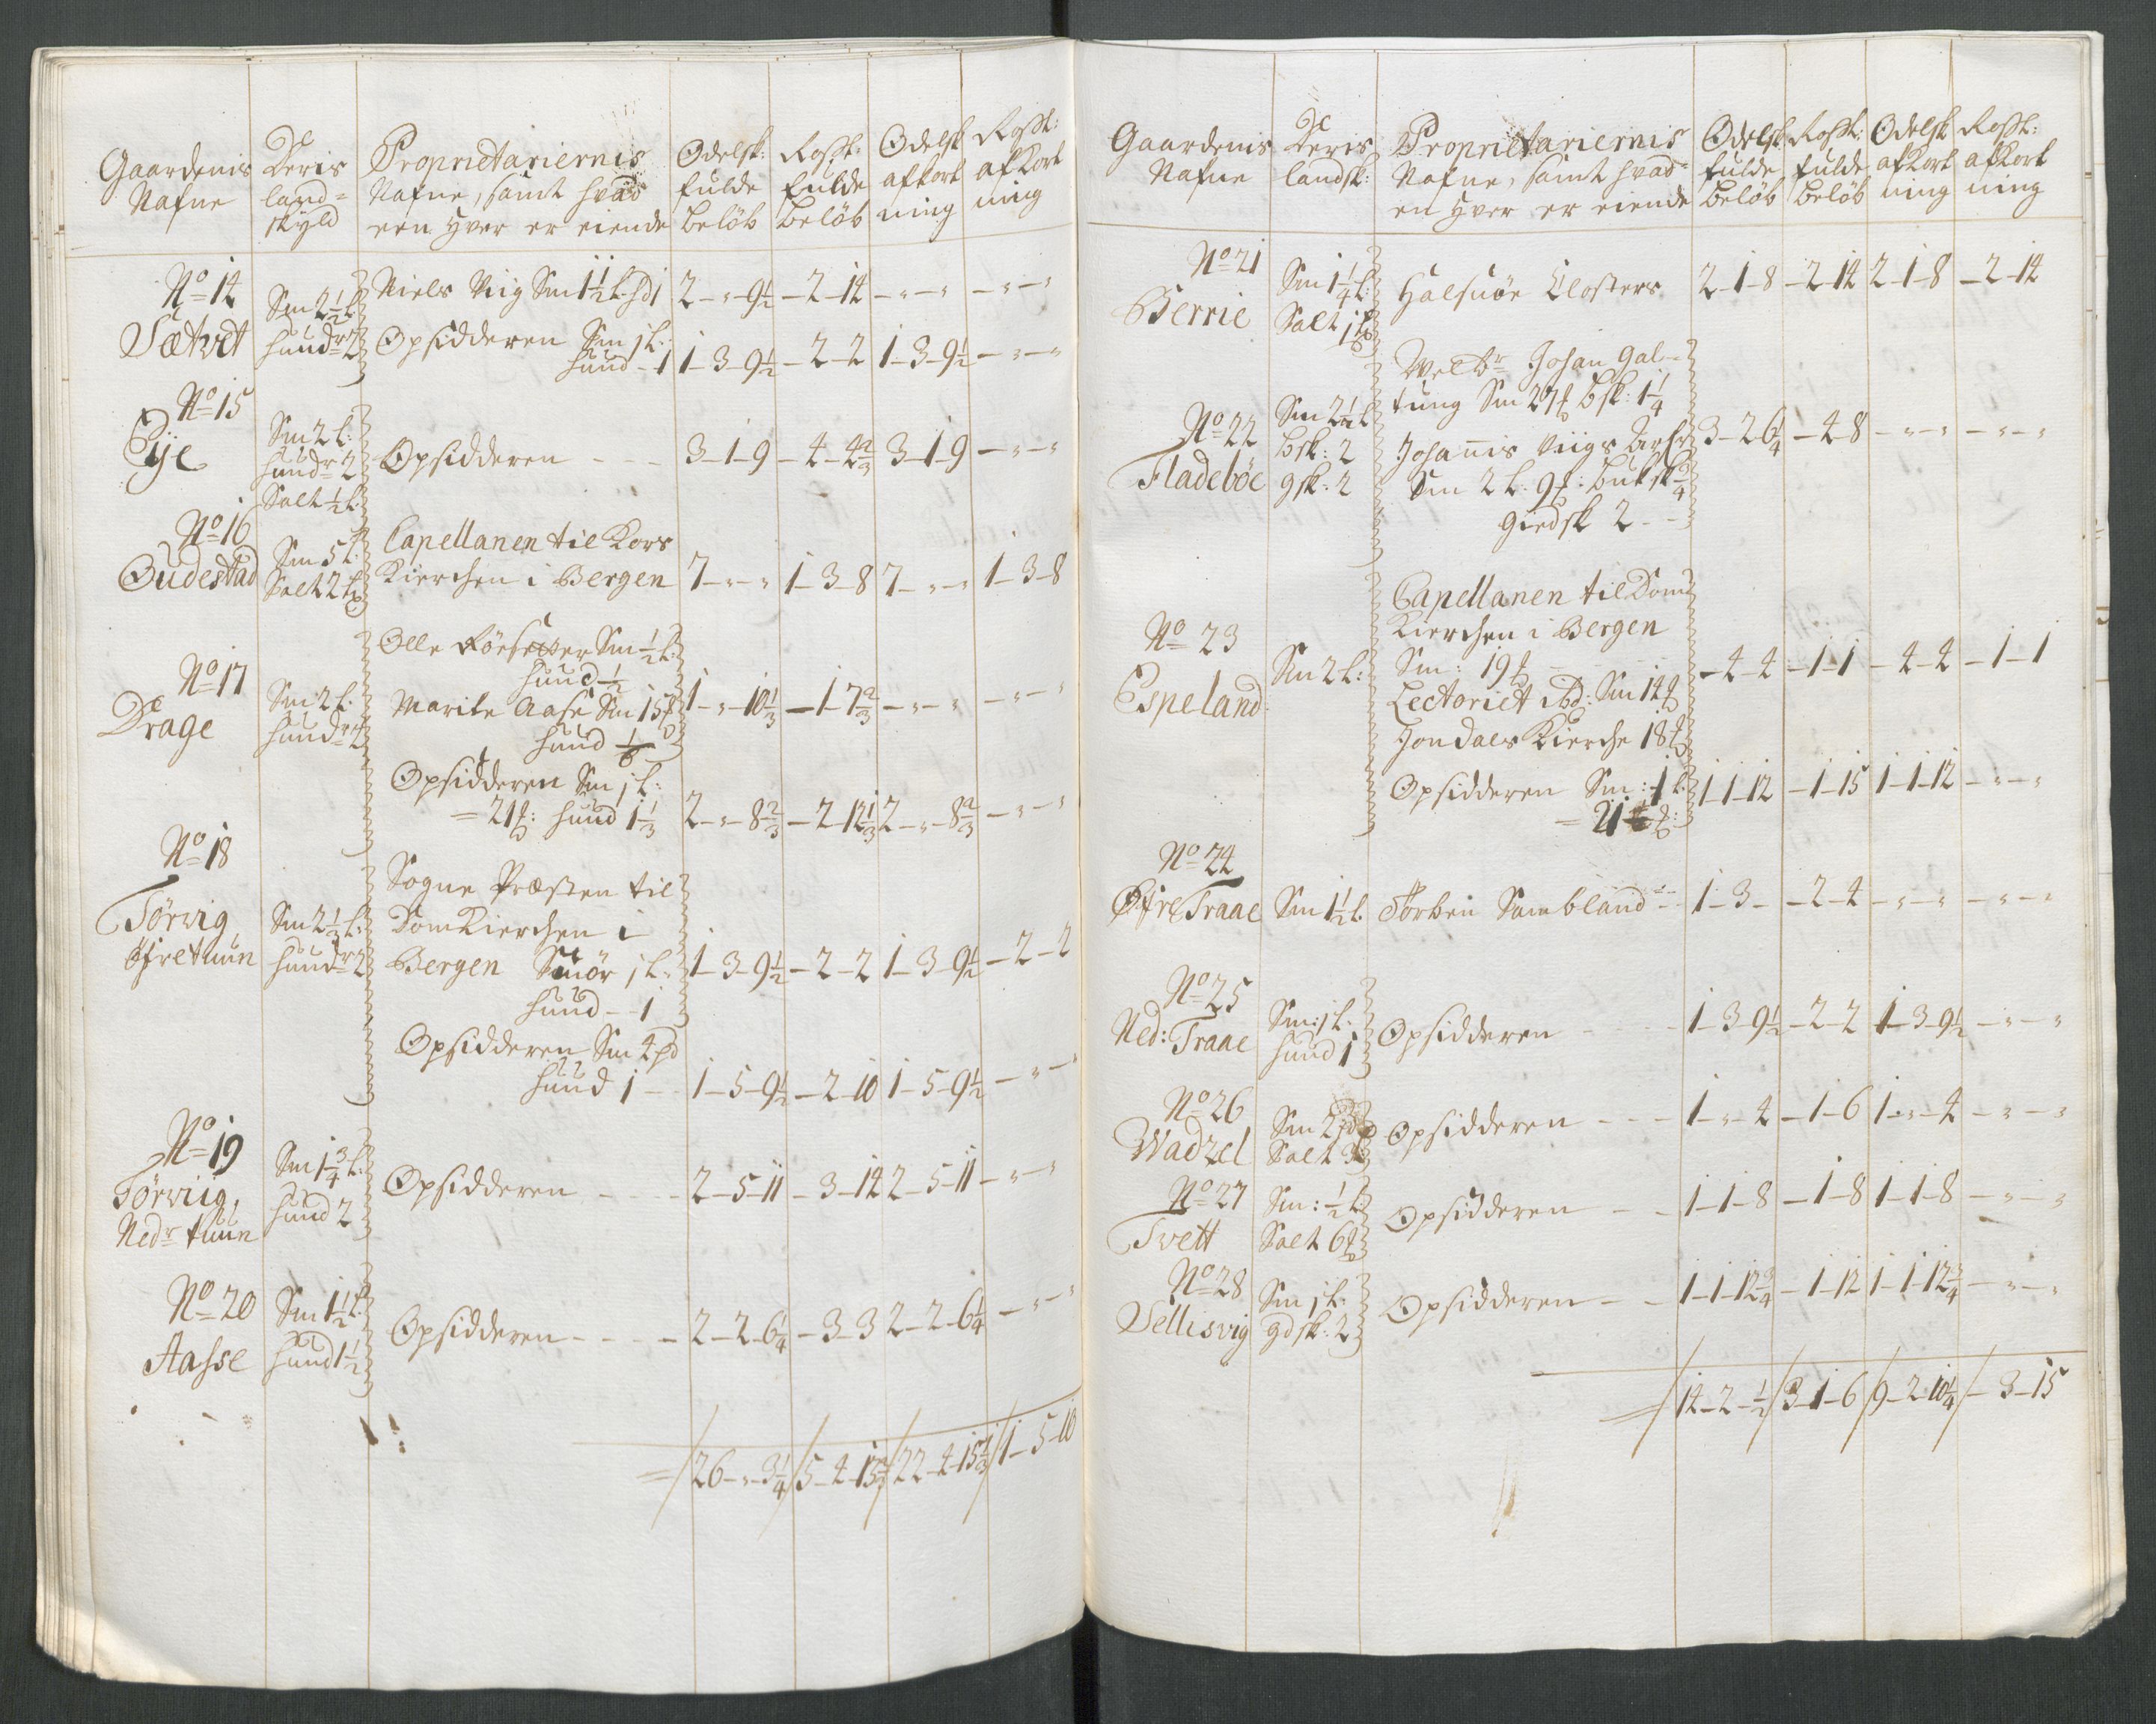 Gaardenis Nafne
Deris land= skyld
Proprietariernis Nafne, samt hvad een hver er eiende
Odelsk: fulde beløb
Rostt: fulde beløb
Odelsk afkort ning
Rostt: afkort ning
No 14
Sætvet
Sm 2½ l
hud 2
Niels Viig Sm 1½ l. hd 1 2-"-9½ -2-14 -"-" -"-"
Opsidderen Sm j l:
hud - 1 1-3-9½ -2-2 1-3-9½ -"-"
No 15
Eje
Sm 2 l:
hud 2
Salt ½ l.
Opsidderen - - 3-1-9 -4-4⅔ 3-1-9 -"-"
No 16
Oudestad
Sm 5 l.
Salt 2
Capellanen til Kors
Kierchen i Bergen 7-"-" 1-3-8 7-"-" 1-3-8
No 17
Drage
Sm 2 l.
hud 2
Olle Sm ½ l:
hud ½
Marite Aase Sm 15
hud 1-"-10⅓ -1-7⅔ -"-" -"-"
Opsidderen Sm j l:
= 21 : hud 1⅓ 2-"-8⅔ -2-12⅓ 2-"-8⅔ -"-"
No 18
Törvig,
öfretuun
Sm 2⅓ l:
hud 2
Sogne Præsten til
DomKierchen i
Bergen Smör j l: 1-3-9½ -2-2 1-3-9½ -2-2
hud - 1
Opsidderen Sm 4 pd
hud 1 - 1-5-9½ -2-10 1-5-9½ -"-"
No 19
Törviig,
Nedr tuun
Sm 1¾ l:
hud 2
Opsidderen - - 2-5-11 -3-14 2-5-11 -"-"
No 20
Aasse
Sm 1½ l.
hud 1½
Opsidderen - - - 2-2-6¼ -3-3 2-2-6¼ -"-"
= / 26-"-3¼ / 5-4-13⅔ / 22-4-15⅔ / 1-5-10
Gaardenis Nafne
Deris landsk:
Proprietariernis Nafne, samt hvad en hver er eiende
Odelsk fulde beløb
Rostt: fulde beløb
Odelsk afkort ning
Rostt: afkort ning
No 21
Berrie
Sm 1¼ l:
Salt j
Halsnöe Closters 2-1-8 -2-14 2-1-8 -2-14
No 22
Fladeböe
Sm 2½ l
bsk: 2
gsk: 2
Welbr Johan Gal-
tung Sm 27 bsk: 1¼
Johannis Viigs Arfr 3-2-6¼ -4-8 -"-" -"-"
Sm 2 l. 9 : buksk ¾
giedsk 2 - -
No 23
Espeland
Sm 2 l:
Capellanen til Dom
Kierchen i Bergen
Sm: 19 -4-4 -1-1 -4-4 -1-1
Lectoriet ibd: Sm 14
Jondals Kierche 18
Opsidderen Sm: 1 l. 1-1-12 -1-15 1-1-12 -"-"
= 21
No 24
Öfre Traae
Sm 1½ l.
Torben Sambland - 1-3- -2-4 -"-" -"-"
No 25
Ned: Traae
Sm: j l.
hud 1
Opsidderen - - 1-3-9½ -2-2 1-3-9½ -"-"
No 26
Wadzel
Sm 2 pd
Salt 3
Opsidderen - - - 1-"-4 -1-6 1-"-4 -"-"
No 27
Tvett
Sm: ½ l
Salt 6
Opsidderen - - 1-1-8 -1-8 1-1-8 -"-"
No 28
Vellisvig
Sm j l.
gdsk: 2
Opsidderen - - 1-1-12¾ -1-12 1-1-12¾ -"-"
= / 14-2-½ / 3-1-6 / 9-2-10¼ / -3-15